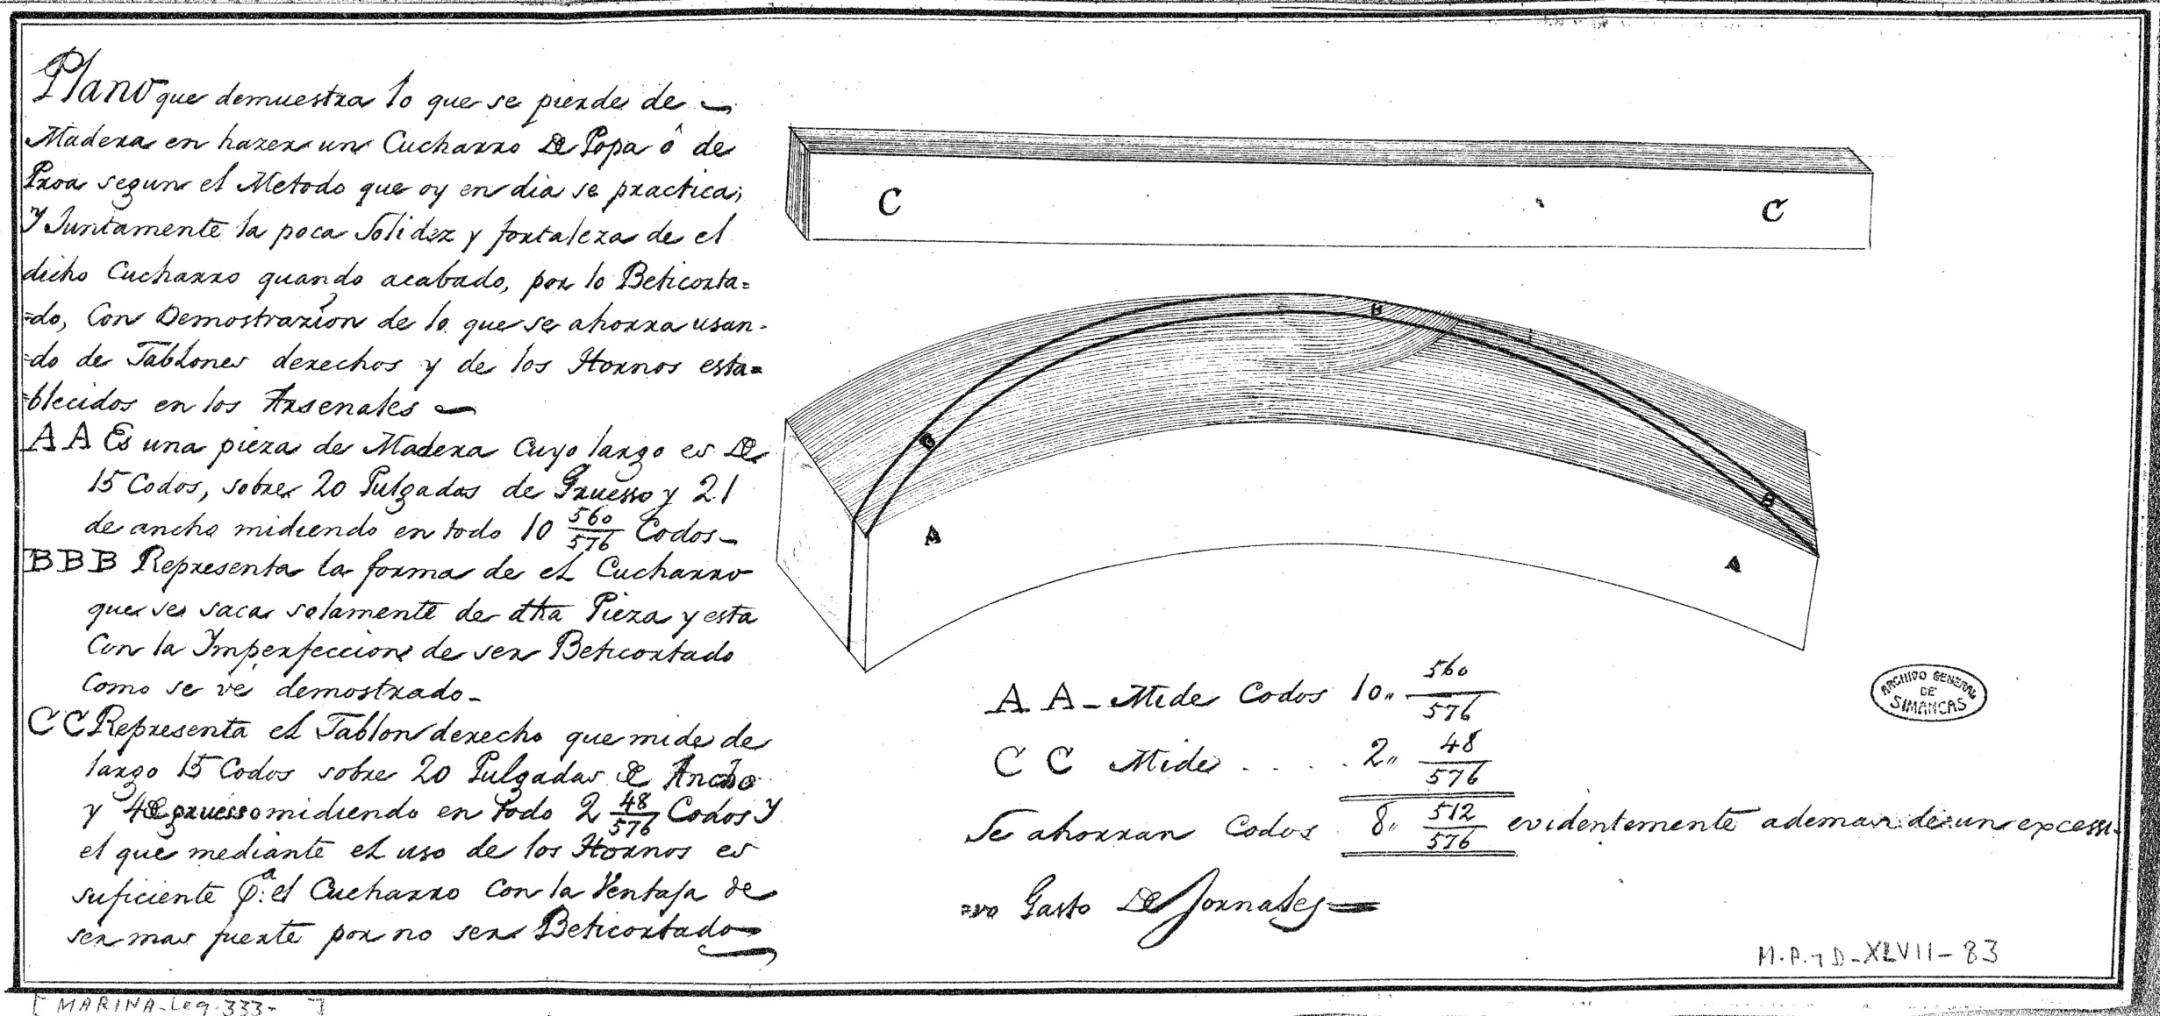 Plano que demuestra lo que se pierde de
Madera en hazer un Cucharro de Popa ô de
Proa segun el Metodo que oy en dia se practica;
Y Juntamente la poca Solidez y fortaleza de el
dicho Cucharro quando acabado, por lo Beticorta=
=do, Con Demostrazion de lo que se ahorra usan-
=do de Tablones derechos y de los Hornos esta=
=blecidos en los Arsenales
A A Es una pieza de Madera Cuyo largo es De
15 Codos, sobre 20 Pulgadas de Gruesso y 21
de ancho midiendo en todo 10 560/576 Codos
B B B Representa la forma de el Cucharro
que se saca solamente de dha Pieza y esta
Con la Imperfeccion de ser Beticortado
Como se vé demostrado
C C Representa el Tablon derecho que mide de
largo 15 Codos sobre 20 Pulgadas de Ancho
y 4 de gruesso midiendo en todo 2 48/576 Codos Y
el que mediante el uso de los Hornos es
suficiente p.ª el Cucharro Con la Ventaja de
ser mas fuerte por no ser Beticortado
C C
B B B
A A
A A - Mide Codos 10,, 560/576
C C Mide . . . . 2,, 48/576
Se ahorran Codos 8,, 512/576 evidentemente ademas de un excessi-
=vo Gasto De Jornales
ARCHIVO GENERAL
DE
SIMANCAS
M.P. y D - XLVII - 83
[MARINA - Leg. 333 - ]